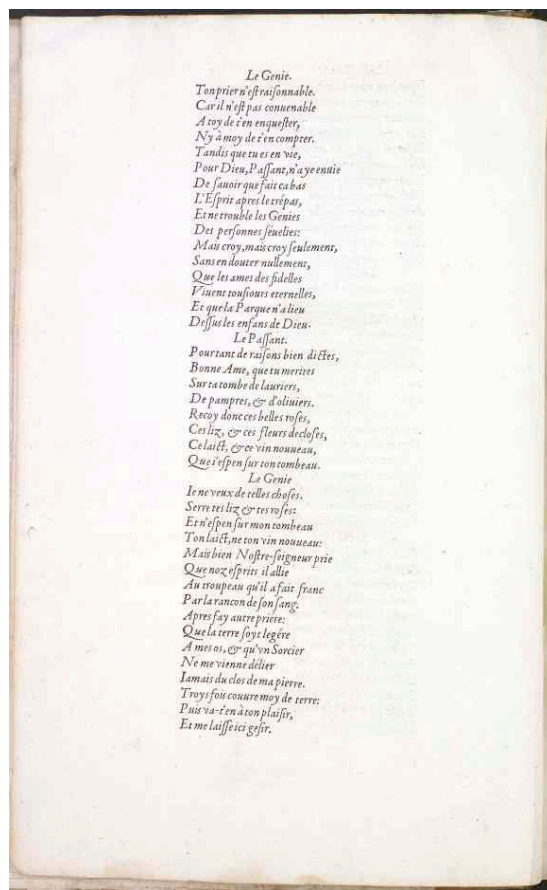 Le Genie.
Ton prier n'eſt raiſonnable.
Car il n'eſt pas conuenable
A toy de t'en enqueſter,
Ny à moy de t'en compter.
Tandis que tu es en vie,
Pour Dieu, Paſſant, n'aye enuie
De ſauoir que fait ca bas
L'Eſprit apres le trépas,
Et ne trouble les Genies
Des perſonnes ſeuelies:
Mais croy, mais croy ſeulement,
Sans en douter nullement,
Que les ames des fidelles
Viuent touſiours eternelles,
Et que la Parque n'a lieu
Deſſus les enfans de Dieu.
Le Paſſant.
Pour tant de raiſons bien dictes,
Bonne Ame, que tu merites
Sur ta tombe de lauriers,
De pampres, & d'oliuiers.
Recoy donc ces belles roſes,
Ces liz, & ces fleurs decloſes,
Ce laict, & ce vin nouueau,
Que i'eſpen ſur ton tombeau.
Le Genie
Ie ne veux de telles choſes.
Serre tes liz & tes roſes:
Et n'eſpen ſur mon tombeau
Ton laict, ne ton vin nouueau:
Mais bien Noſtre-ſeigneur prie
Que noz eſprits il allie
Au troupeau qu'il a fait franc
Par la rancon de ſon ſang.
Apres fay autre priere:
Que la terre ſoyt legére
A mes os, & qu'vn Sorcier
Ne me vienne délier
Iamais du clos de ma pierre.
Troys fois couure moy de terre:
Puis va-t'en à ton plaiſir,
Et me laiſſe ici geſir.